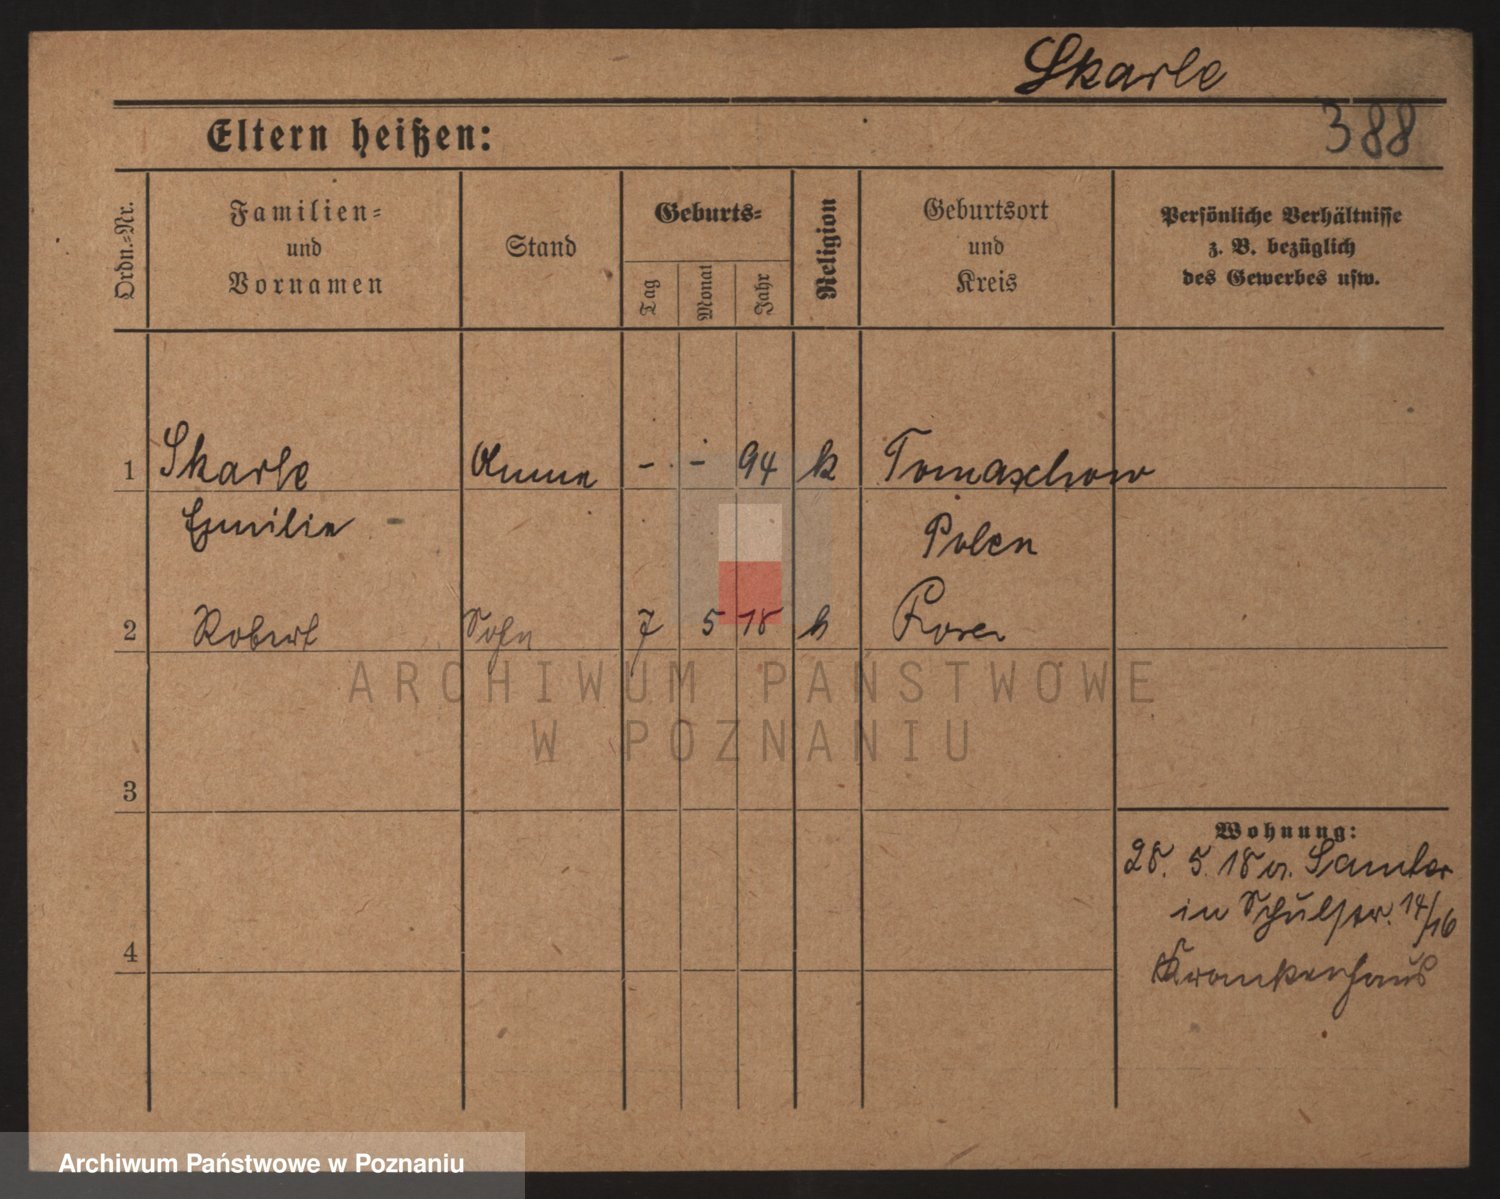 Skarle
388
Eltern heißen:
Ordn.-Nr.
Familien-
und
Vornamen
Stand
Geburts-
Tag
Monat
Jahr
Religion
Geburtsort
und
Kreis
Persönliche Verhältnisse
z. B. bezüglich
des Gewerbes usw.
1 Skarle Amme - - 94 k Tomaschow
Emilie Polen
2 Robert Sohn 7 5 18 k Posen
3
4
Wohnung:
28. 5. 18 v. Samter
in Schulstr. 14/16
Krankenhaus
ARCHIWUM PAŃSTWOWE
W POZNANIU
Archiwum Państwowe w Poznaniu